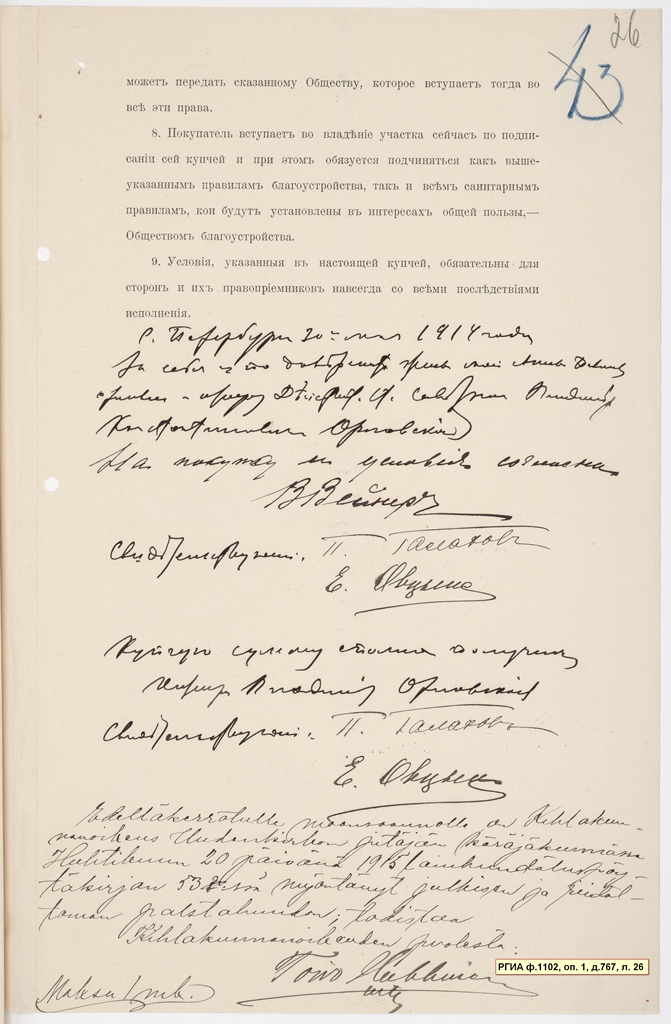 26
43
можетъ передать сказанному Обществу, которое вступаетъ тогда во
всѣ эти права.
8. Покупатель вступаетъ во владѣніе участка сейчасъ по подпи-
саніи сей купчей и при этомъ обязуется подчиняться какъ выше-
указаннымъ правиламъ благоустройства, такъ и всѣмъ санитарнымъ
правиламъ, кои будутъ установлены въ интересахъ общей пользы,—
Обществомъ благоустройства.
9. Условія, указанныя въ настоящей купчей, обязательны для
сторонъ и ихъ правопріемниковъ навсегда со всѣми послѣдствіями
исполненія.
С. Петербургъ 1914 года
За себя и по
Владиміръ
Константиновичъ Орловскій
На покупку и условія согласенъ
В Вейнеръ
П. Галаховъ
Е. Овцынъ
сумму сполна получилъ
Владиміръ Орловскій
П. Галаховъ
Е. Овцынъ
on Kihlakun-
nanoikeus Uudenkirkon pitäjän käräjäkunnassa
Huhtikuun 20 päivänä 1915 lainhuudatuspöy-
täkirjan 53 §:ssä myöntänyt julkisen ja
toman todistaa
Kihlakunnanoikeuden puolesta:
Toivo
Maksu
РГИА ф.1102, оп. 1, д.767, л. 26